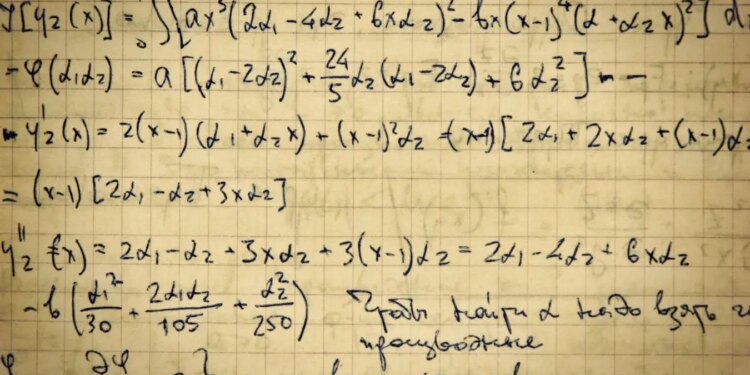 J[y₂(x)] = ∫₀ {[ax³(2α₁ - 4α₂ + 6xα₂)² - bx(x-1)⁴(α + α₂x)²] d
= φ(α₁α₂) = a[(α₁ - 2α₂)² + 24/5 α₂(α₁ - 2α₂) + 6α₂²] - -
y'₂(x) = 2(x-1)(α₁ + α₂x) + (x-1)²α₂ = (x-1)[2α₁ + 2xα₂ + (x-1)α₂
= (x-1)[2α₁ - α₂ + 3xα₂]
y''₂(x) = 2α₁ - α₂ + 3xα₂ + 3(x-1)α₂ = 2α₁ - 4α₂ + 6xα₂
- b(α₁²/30 + 2α₁α₂/105 + α₂²/250) Чтобы найти α надо взять
производные
φ ∂φ